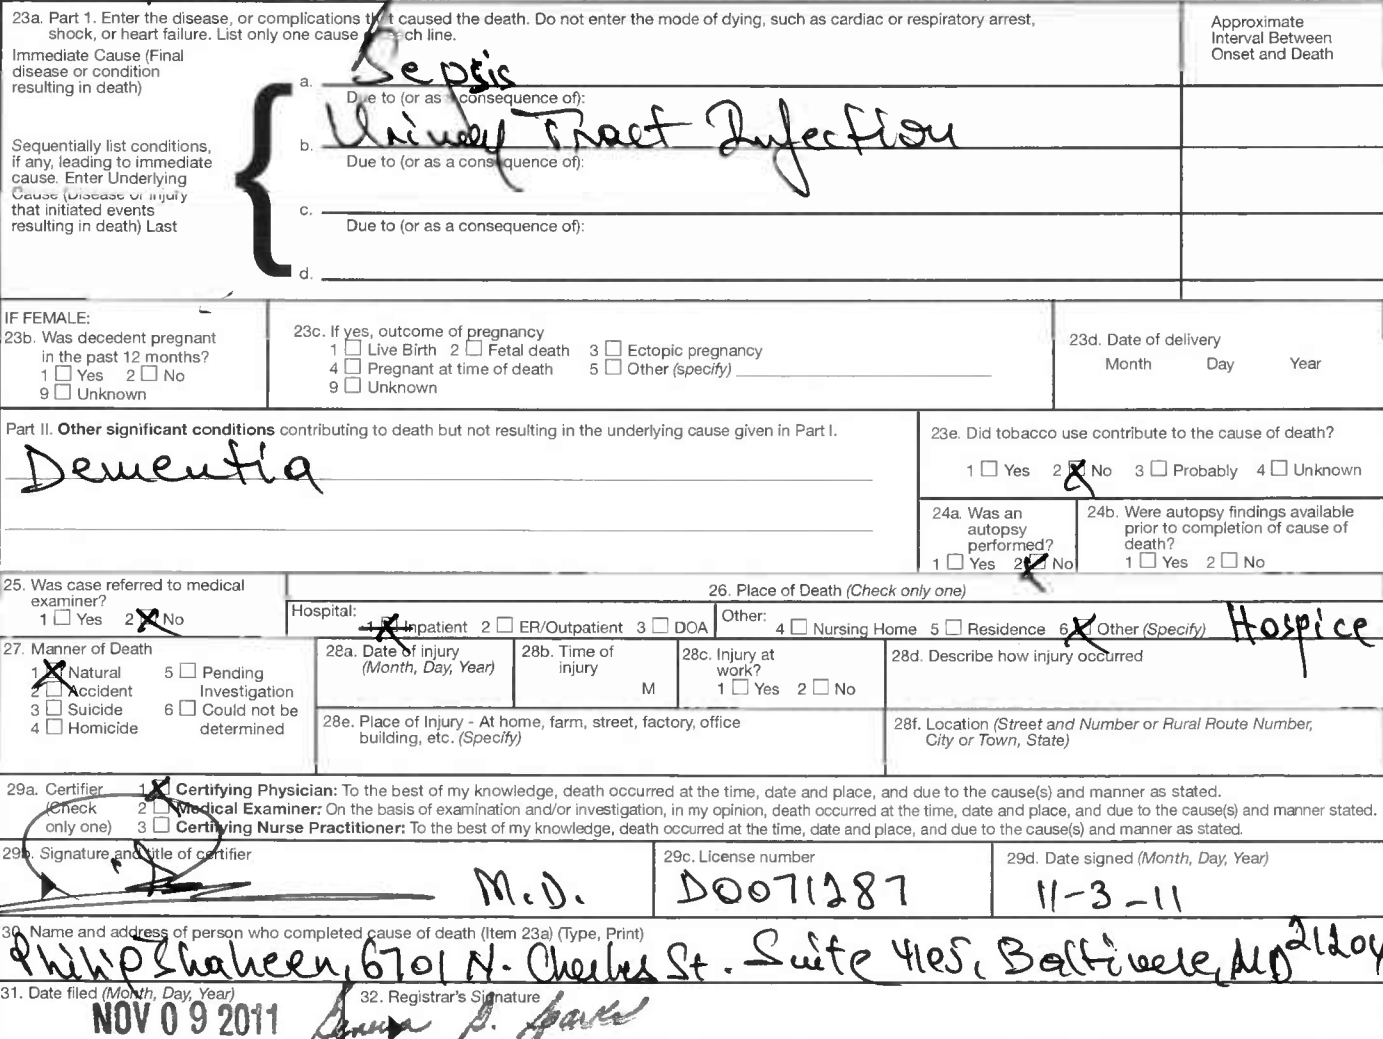 23a. Part 1. Enter the disease, or complications that caused the death. Do not enter the mode of dying, such as cardiac or respiratory arrest,
shock, or heart failure. List only one cause ch line.
Approximate
Interval Between
Onset and Death
Immediate Cause (Final
disease or condition
resulting in death)
a. Sepsis
Due to (or as a consequence of):
Sequentially list conditions,
if any, leading to immediate
cause. Enter Underlying
Cause (Disease or injury
that initiated events
resulting in death) Last
b. Urinary Tract Infection
Due to (or as a consequence of):
c.
Due to (or as a consequence of):
d.
IF FEMALE:
23b. Was decedent pregnant
in the past 12 months?
1 ☐ Yes 2 ☐ No
9 ☐ Unknown
23c. If yes, outcome of pregnancy
1 ☐ Live Birth 2 ☐ Fetal death 3 ☐ Ectopic pregnancy
4 ☐ Pregnant at time of death 5 ☐ Other (specify)
9 ☐ Unknown
23d. Date of delivery
Month Day Year
Part II. Other significant conditions contributing to death but not resulting in the underlying cause given in Part I.
Dementia
23e. Did tobacco use contribute to the cause of death?
1 ☐ Yes 2 ☒ No 3 ☐ Probably 4 ☐ Unknown
24a. Was an
autopsy
performed?
1 ☐ Yes 2 ☒ No
24b. Were autopsy findings available
prior to completion of cause of
death?
1 ☐ Yes 2 ☐ No
25. Was case referred to medical
examiner?
1 ☐ Yes 2 ☒ No
26. Place of Death (Check only one)
Hospital: 1 ☒ Inpatient 2 ☐ ER/Outpatient 3 ☐ DOA
Other: 4 ☐ Nursing Home 5 ☐ Residence 6 ☒ Other (Specify) Hospice
27. Manner of Death
1 ☒ Natural
2 ☐ Accident
3 ☐ Suicide
4 ☐ Homicide
5 ☐ Pending
Investigation
6 ☐ Could not be
determined
28a. Date of injury
(Month, Day, Year)
28b. Time of
injury
M
28c. Injury at
work?
1 ☐ Yes 2 ☐ No
28d. Describe how injury occurred
28e. Place of Injury - At home, farm, street, factory, office
building, etc. (Specify)
28f. Location (Street and Number or Rural Route Number,
City or Town, State)
29a. Certifier
(Check
only one)
1 ☒ Certifying Physician: To the best of my knowledge, death occurred at the time, date and place, and due to the cause(s) and manner as stated.
2 ☐ Medical Examiner: On the basis of examination and/or investigation, in my opinion, death occurred at the time, date and place, and due to the cause(s) and manner stated.
3 ☐ Certifying Nurse Practitioner: To the best of my knowledge, death occurred at the time, date and place, and due to the cause(s) and manner as stated.
29b. Signature and title of certifier
M.D.
29c. License number
D0071287
29d. Date signed (Month, Day, Year)
11-3-11
30. Name and address of person who completed cause of death (Item 23a) (Type, Print)
Philip Shaheen, 6701 N. Charles St. Suite 4105, Baltimore, MD 21204
31. Date filed (Month, Day, Year)
NOV 09 2011
32. Registrar's Signature